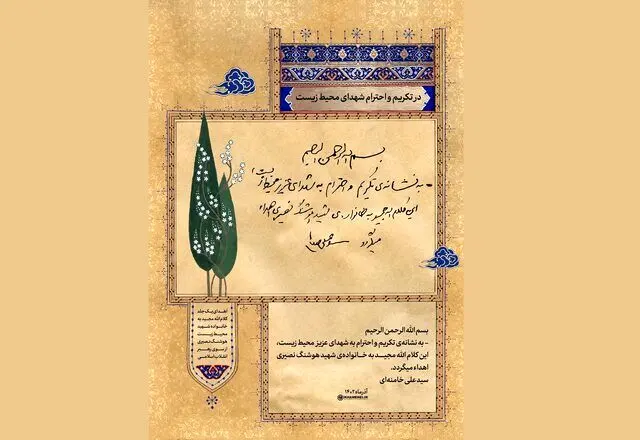 در تکریم و احترام شهدای محیط زیست
بسم الله الرحمن الرحیم
- به نشانه‌ی تکریم و احترام به شهدای عزیز محیط زیست،
این کلام الله مجید به خانواده‌ی شهید هوشنگ نصیری اهداء
میگردد. سیدعلی خامنه‌ای
اهدای یک جلد
کلام‌الله مجید به
خانواده شهید
محیط زیست
هوشنگ نصیری
از سوی رهبر
انقلاب اسلامی
بسم الله الرحمن الرحیم
- به نشانه‌ی تکریم و احترام به شهدای عزیز محیط زیست،
این کلام الله مجید به خانواده‌ی شهید هوشنگ نصیری
اهداء میگردد.
سیدعلی خامنه‌ای
آذرماه ۱۴۰۲
KHAMENEI.IR